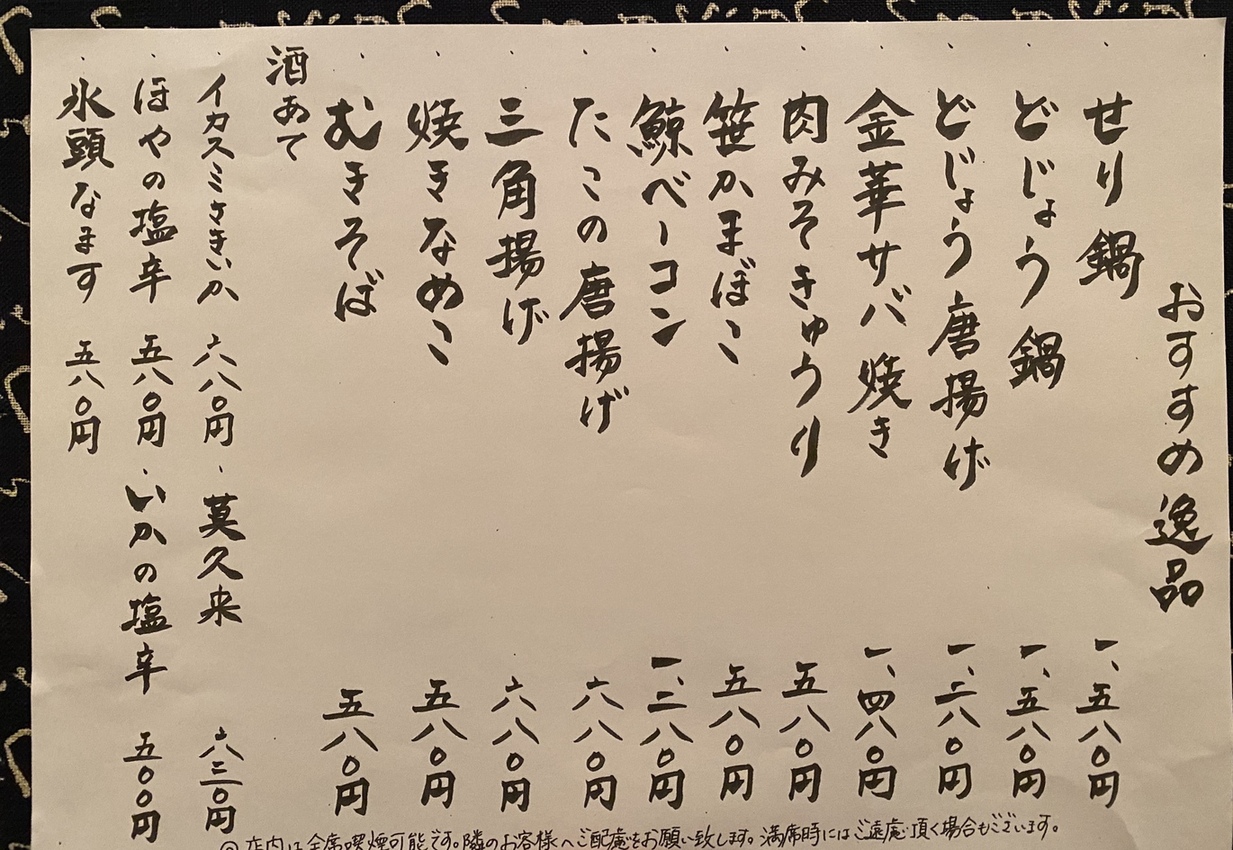 おすすめ逸品
・せり鍋 一、五八〇円
・どじょう鍋 一、五八〇円
・どじょう唐揚げ 一、二八〇円
・金華サバ焼き 一、四八〇円
・肉みそきゅうり 五八〇円
・笹かまぼこ 五八〇円
・鯨ベーコン 一、二八〇円
・たこの唐揚げ 六八〇円
・三角揚げ 六八〇円
・焼きなめこ 五八〇円
・むきそば 五八〇円
酒あて
・イカスミさきいか 六八〇円 ・莫久来 六三〇円
・ほやの塩辛 五八〇円 ・いかの塩辛 五〇〇円
・氷頭なます 五八〇円
◎店内は全席喫煙可能です。隣のお客様へご配慮をお願い致します。満席時にはご遠慮頂く場合もございます。